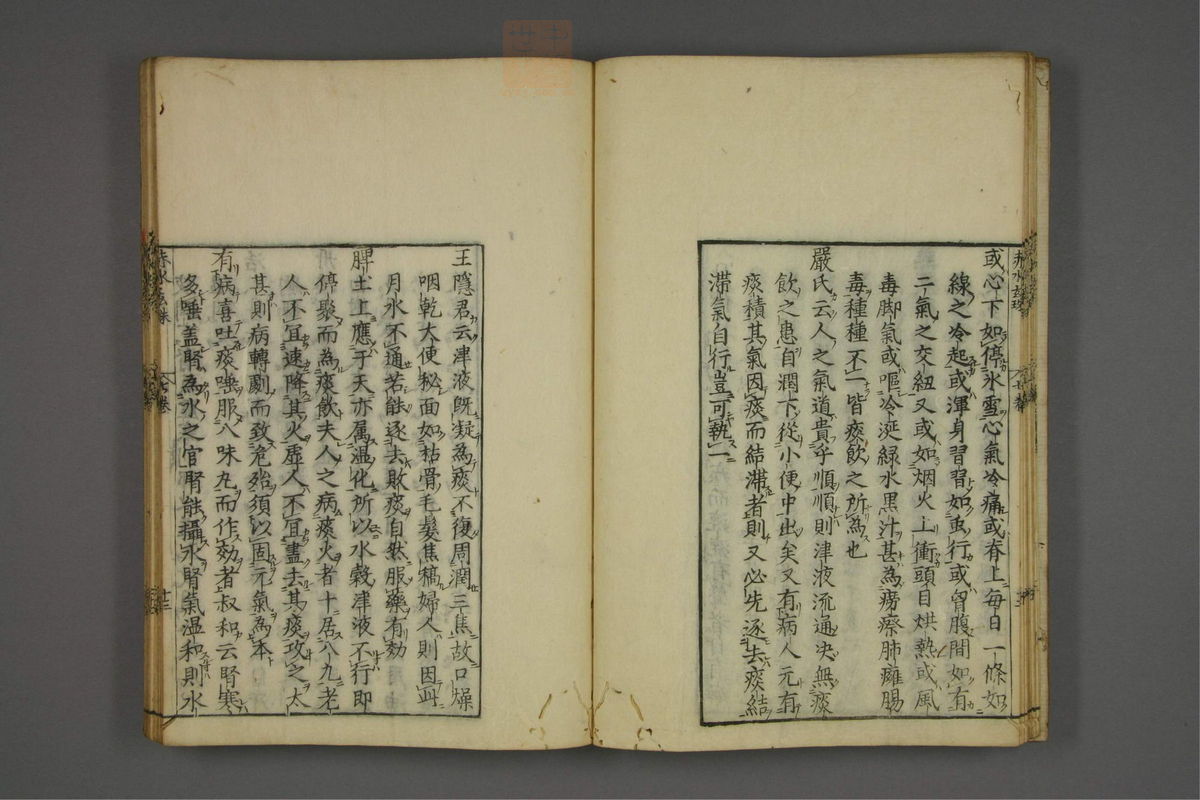 或心下如停氷雪心氣冷痛或脊上毎日一條如
線之冷起或渾身習習如䖝行或胷腹間如有
二氣之交紐又或如烟火上衝頭目烘熱或風
毒脚氣或嘔冷涎緑水黒汁甚為癆瘵肺癰腸
毒種種不一皆痰飲之所為也
嚴氏云人之氣道貴乎順順則津液流通决無痰
飲之患自潤下從小便中出矣又有病人元有
痰積其氣因痰而結滞者則又必先逐去痰結
滞氣自行豈可執一
赤水玄珠
七卷
十三
王隠君云津液既凝為痰不復周潤三焦故口燥
咽乾大便秘面如枯骨毛髮焦槁婦人則因此
月水不通若能逐去敗痰自然服藥有効
脾土上應于天亦属温化所以水榖津液不行即
停聚而為痰飲夫人之病痰火者十居八九老
人不宜速降其火虚人不宜盡去其痰攻之太
甚則病轉劇而致危殆須以固元氣為本
有病喜吐痰唾服八味丸而作効者叔和云腎寒
多唾盖腎為水之官腎能攝水腎氣温和則水